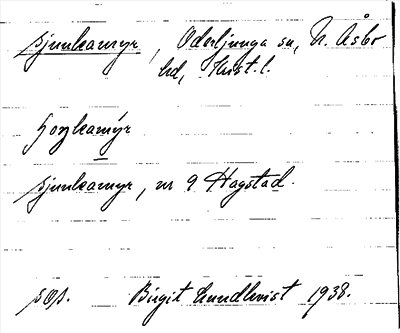 Sjunkamyr, Oderljunga sn, N. Åsbo
hd, Krist. l.
Sjunkamyr, nr 9 Hagstad.
sop. Birgit Lundkvist 1938.